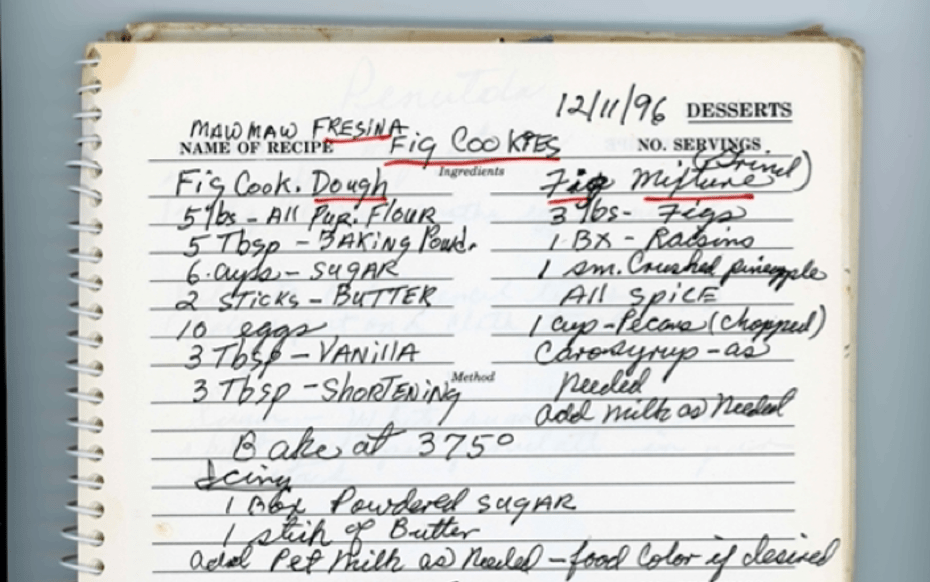 12/11/96 DESSERTS
MAWMAW FRESINA
NAME OF RECIPE FIG COOKIES NO. SERVINGS
Ingredients
Fig Cook. Dough
5 lbs - All Pur. Flour
5 Tbsp - BAKING Powd.
6 cups - SUGAR
2 STICKS - BUTTER
10 eggs
3 Tbsp - VANILLA
3 Tbsp - SHORTENING
Fig Mixture (Grind)
3 lbs - Figs
1 BX - Raisins
1 sm. Crushed pineapple
All SPICE
1 cup - Pecans (chopped)
Caro syrup - as
needed
add milk as Needed
Method
Bake at 375°
Icing
1 Box Powdered SUGAR
1 stick of Butter
add Pet Milk as Needed - food Color if desired